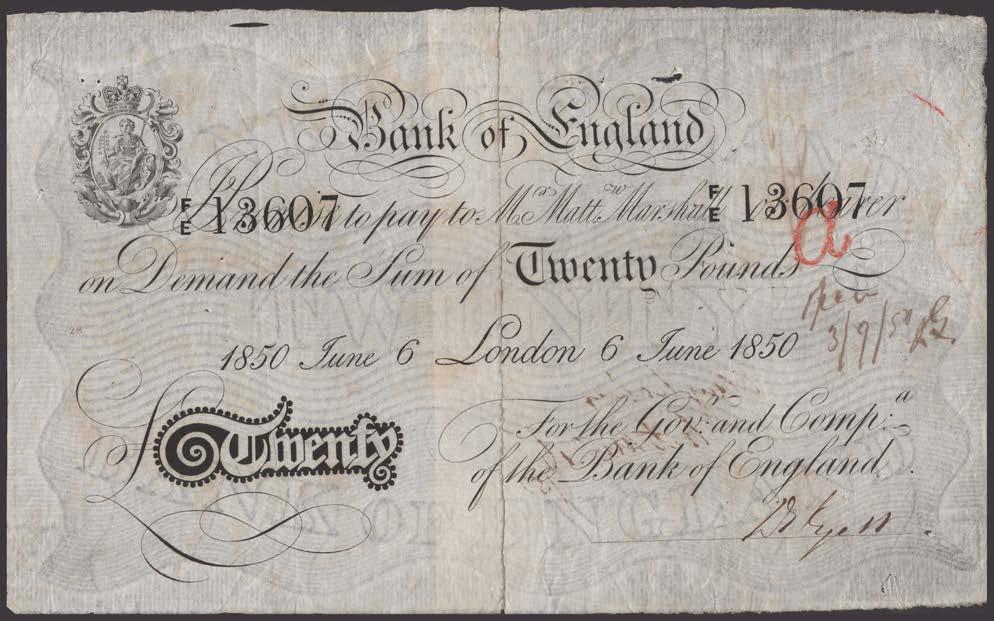 Bank of England
F/E 13607 to pay to Mr. Mattw Marshall F/E 13607 or Bearer
on Demand the Sum of Twenty Pounds
a
3/9/50
28
1850 June 6 London 6 June 1850
£ Twenty
For the Gov: and Comp:a
of the Bank of England.